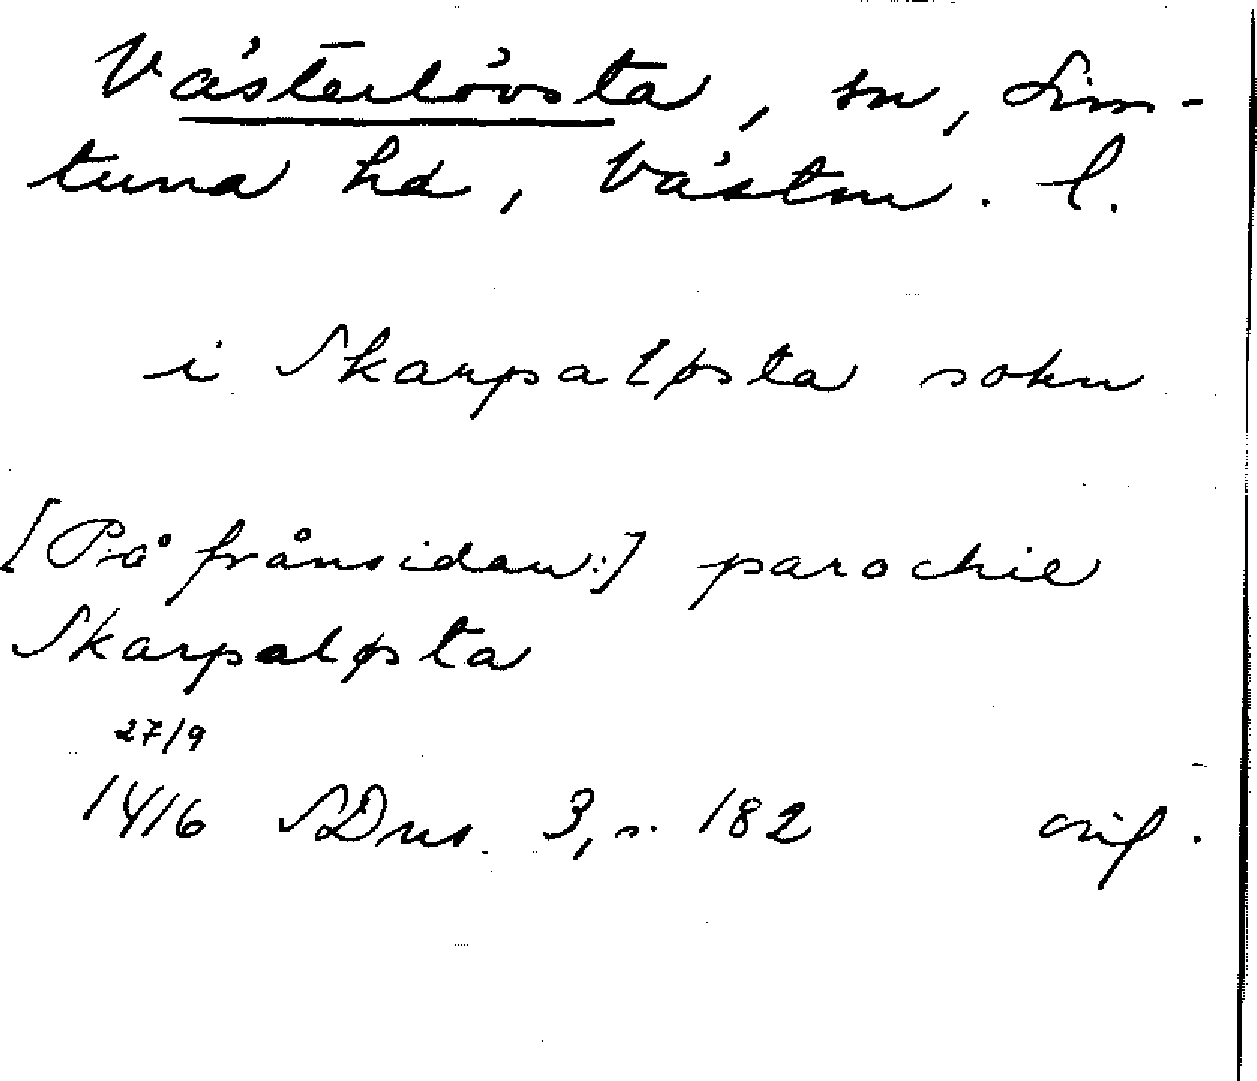 Västerlövsta, sn, Sim-
tuna hd, Västm. l.
i Skarpaløsta sokn
[På frånsidan:] parochie
Skarpaløsta
27/9
1416 SDns 3, s. 182 orig.